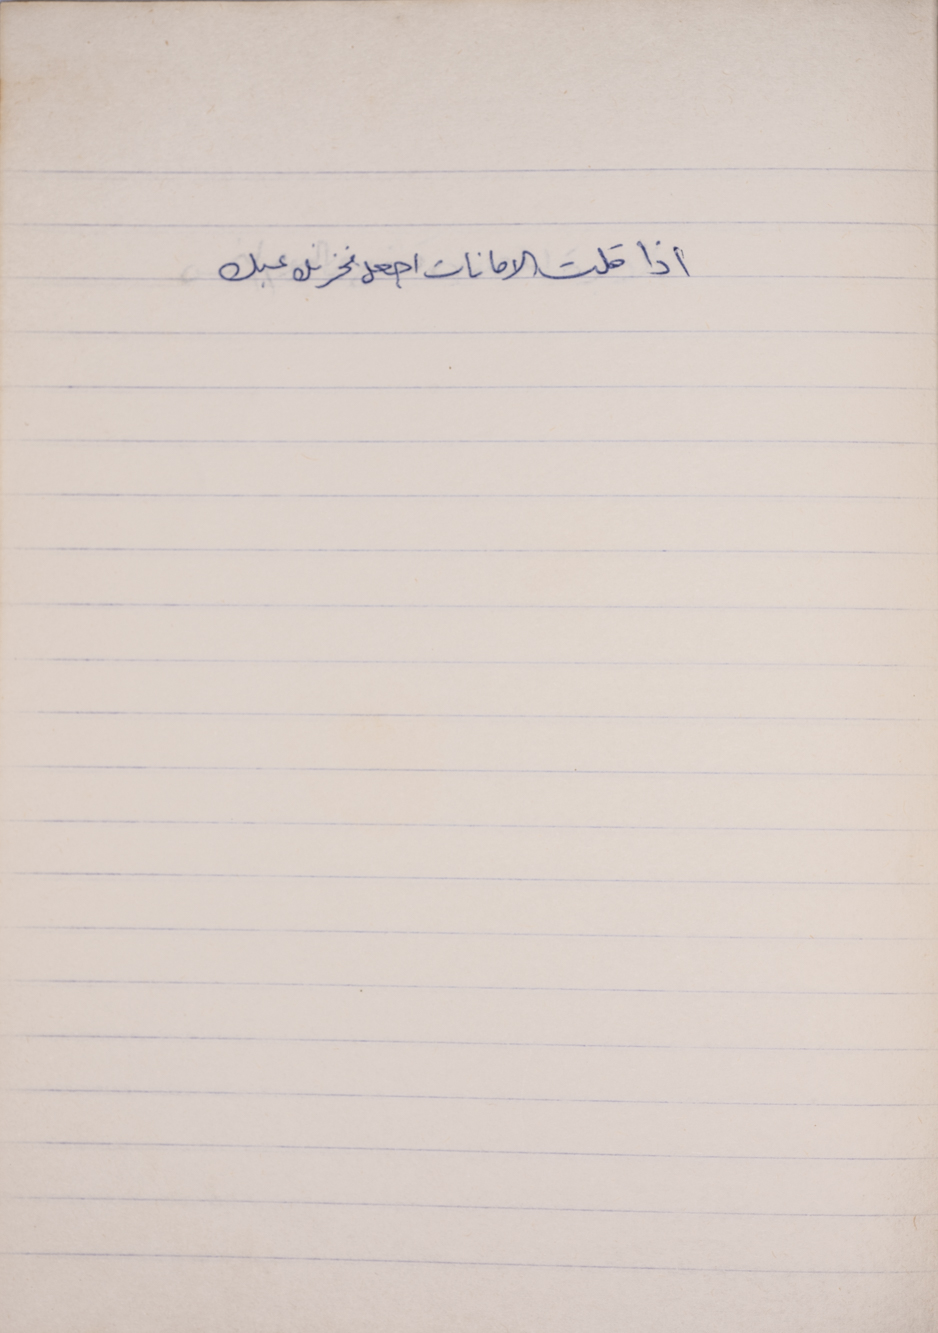 اذا قلت الامانات اجعل مخزنك عبك